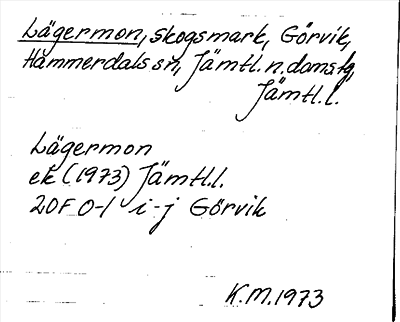 Lägermon, skogsmark, Görvik,
Hammerdals sn, Jämtl. n. doms.tg,
Jämtl.l.
Lägermon
ek (1973) Jämtl.l.
20F 0-1 i-j Görvik
K.M. 1973